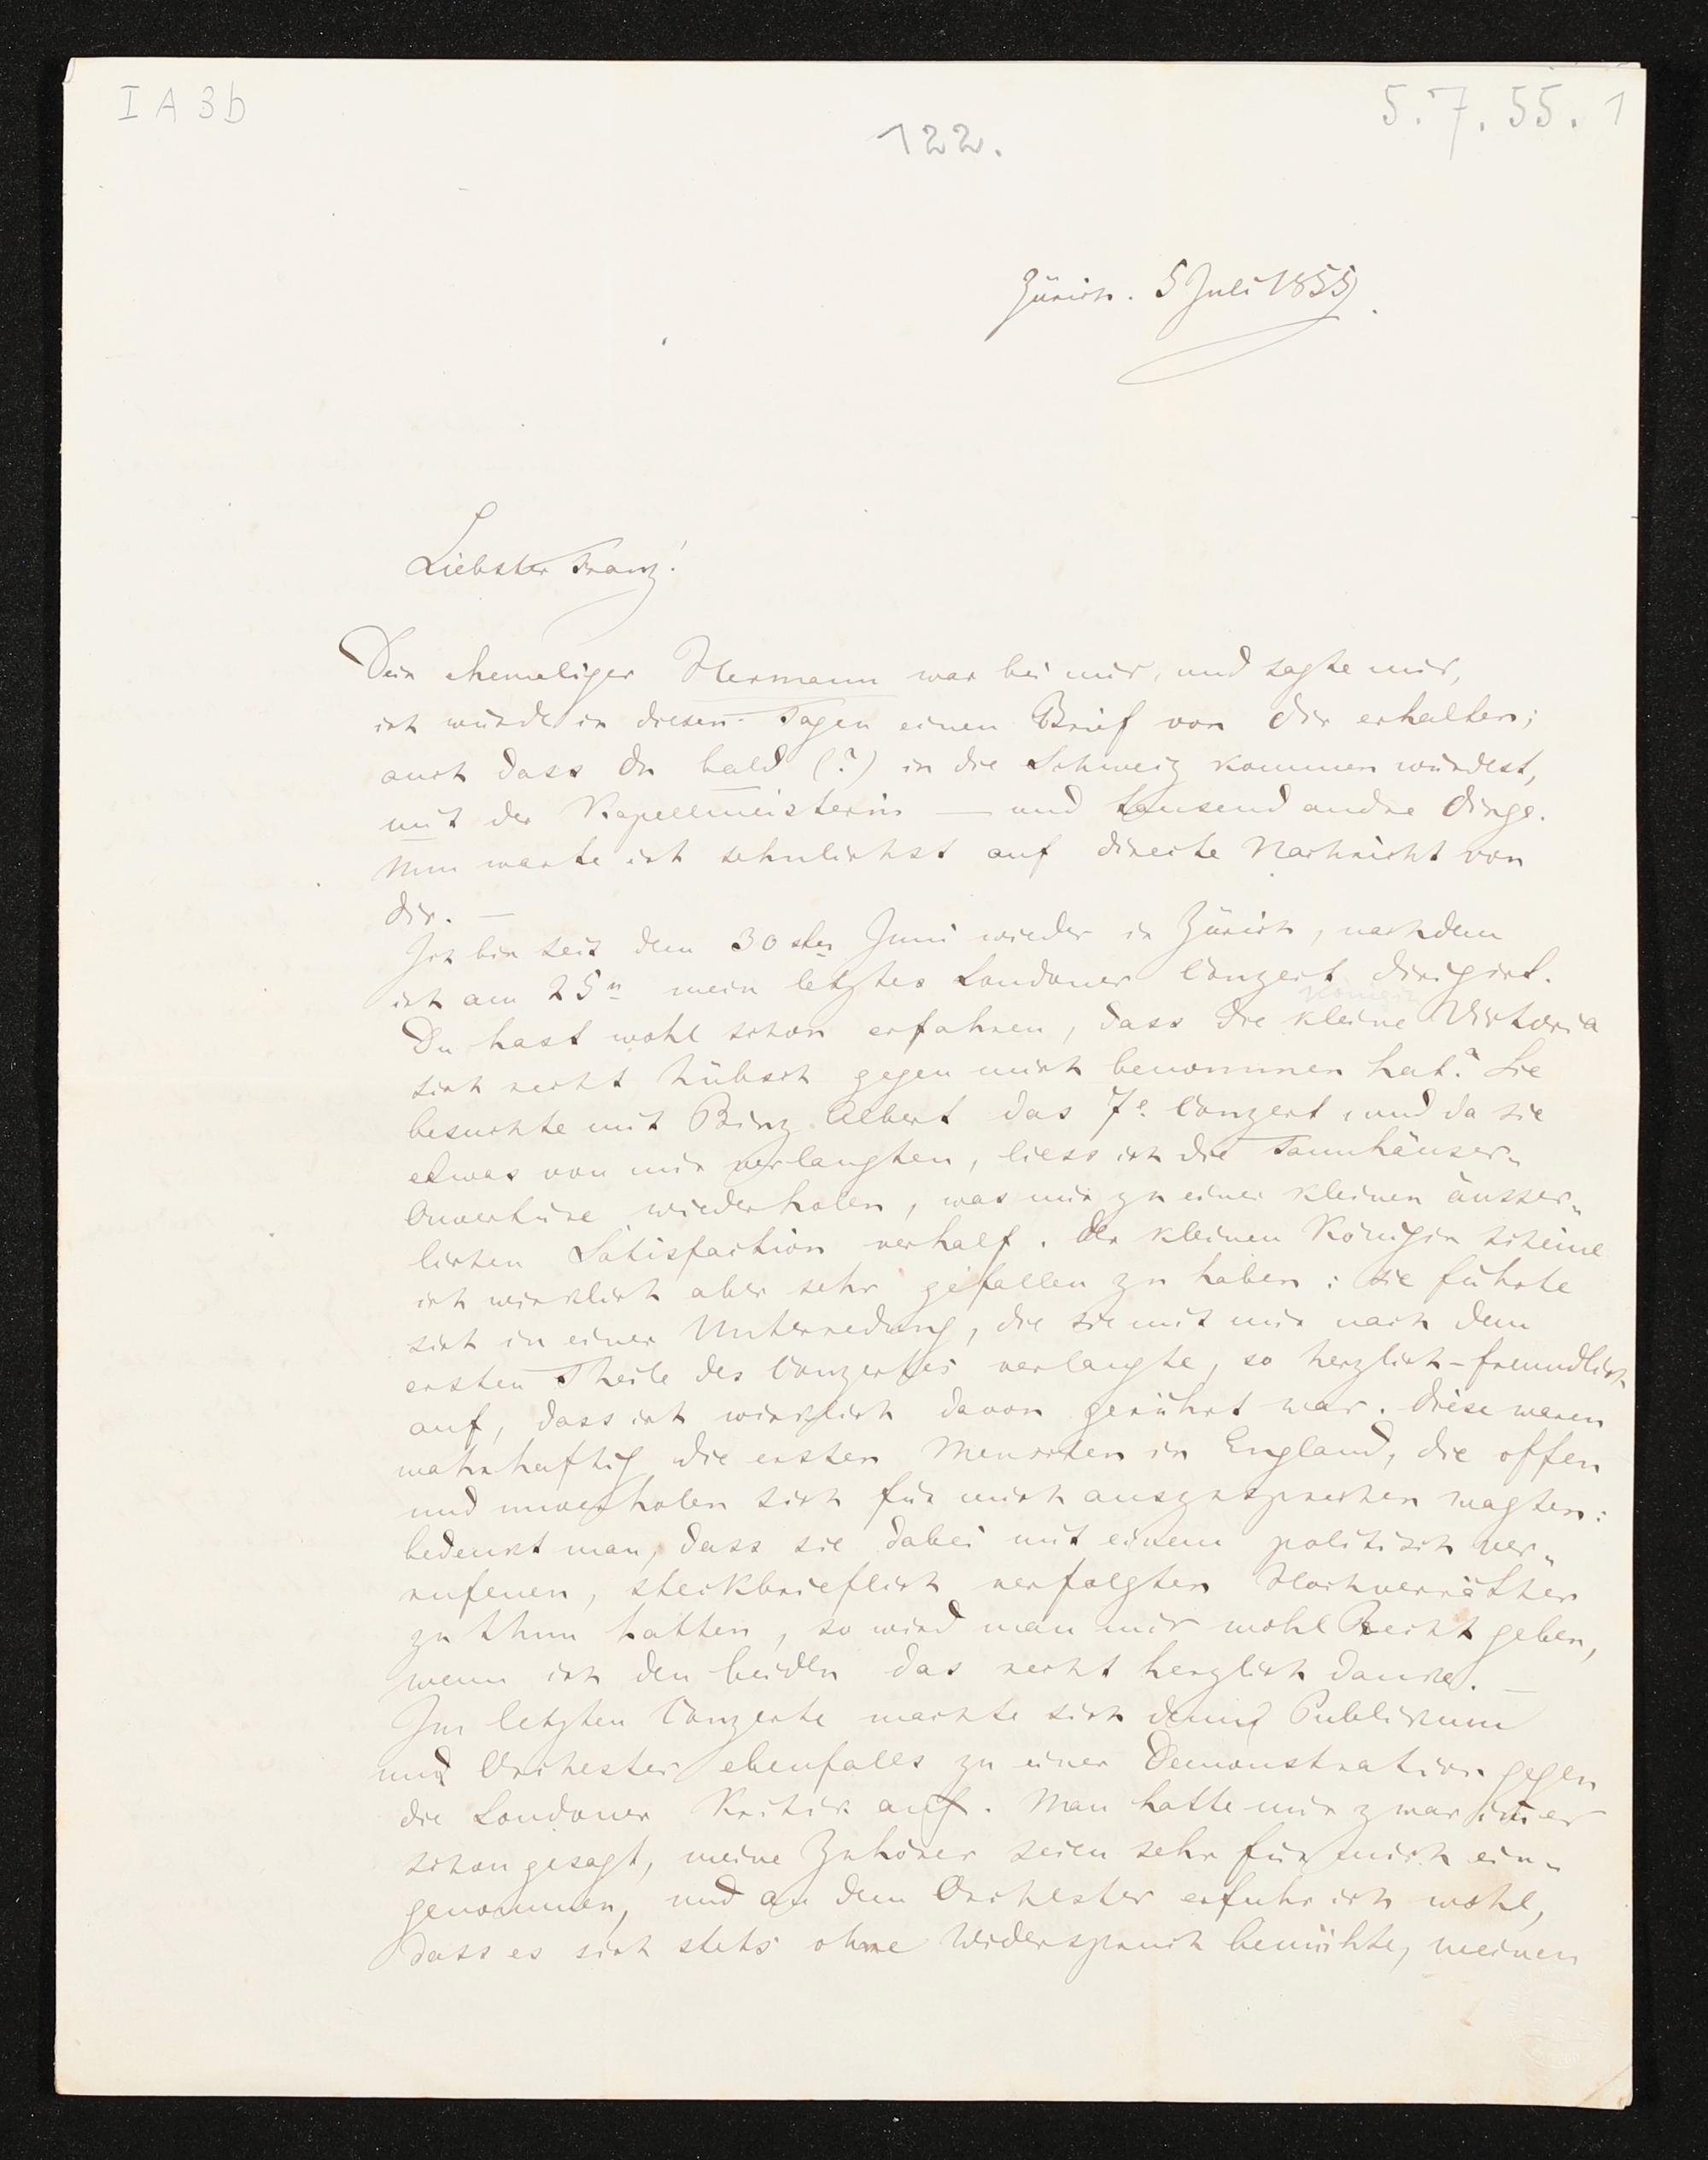 I A 3b
5.7.55. 1
122.
Zürich. 5 Juli 1855.
Liebster Franz!
Dein ehemaliger Hermann war bei mir, und sagte mir,
ich würde in diesen Tagen einen Brief von dir erhalten;
auch dass du bald (?) in die Schweiz kommen würdest,
mit der Kapellmeisterin — und tausend andre Dinge.
Nun warte ich sehnlichst auf directe Nachricht von
dir. —
Ich bin seit dem 30sten Juni wieder in Zürich, nachdem
ich am 25n mein letztes Londoner Conzert dirigirt.
Königin
Du hast wohl schon erfahren, dass die kleine Victoria
sich recht hübsch gegen mich benommen hat? Sie
besuchte mit Prinz Albert das 7e. Conzert, und da sie
etwas von mir verlangten, liess ich die Tannhäuser-
Ouvertüre wiederholen, was mir zu einer kleinen äusser-
lichen Satisfaction verhalf. Der kleinen Königin scheine
ich wirklich aber sehr gefallen zu haben: sie führte
sich in einer Unterredung, die sie mit mir nach dem
ersten Theile des Conzertes verlangte, so herzlich-freundlich
auf, dass ich wirklich davon gerührt war. Diese waren
wahrhaftig die ersten Menschen in England, die offen
und unverholen sich für mich auszusprechen wagten:
bedenkt man, dass sie dabei mit einem politisch ver-
rufenen, steckbrieflich verfolgten Hochverräther
zu thun hatten, so wird man mir wohl Recht geben,
wenn ich den beiden das recht herzlich danke. —
Im letzten Conzerte machte sich denn Publikum
und Orchester ebenfalls zu einer Demonstration gegen
die Londoner Kritik auf. Man hatte mir zwar im̄er
schon gesagt, meine Zuhörer seien sehr für mich ein-
genommen, und an dem Orchester erfuhr ich wohl,
dass es sich stets ohne Widerspruch bemühte, meinen